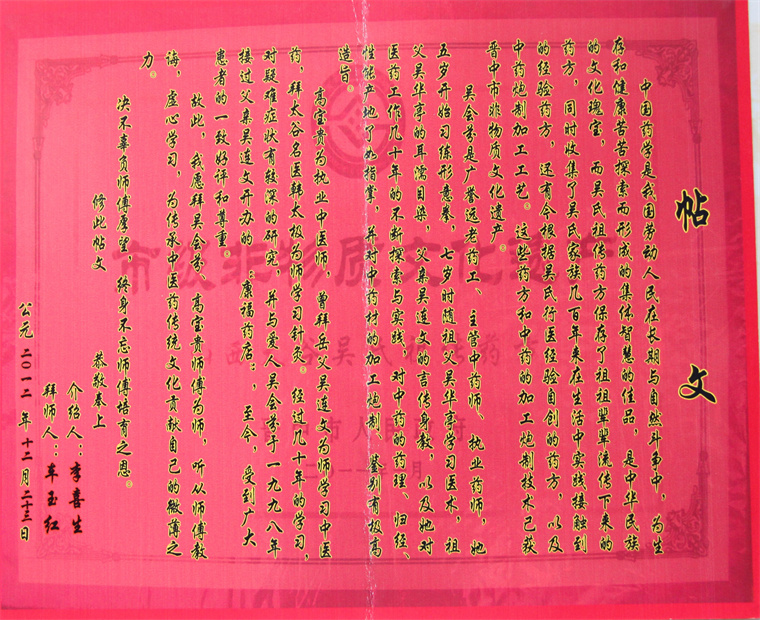 帖文
中国药学是我国劳动人民在长期与自然斗争中，为生
存和健康苦苦探索而形成的集体智慧的佳品，是中华民族
的文化瑰宝，而吴氏祖传药方保存了祖祖辈辈流传下来的
药方，同时收集了吴氏家族几百年来在生活中实践接触到
的经验药方，还有今根据吴氏行医经验自创的药方，以及
中药炮制加工工艺。这些药方和中药的加工炮制技术已获
晋中市非物质文化遗产。
吴会芬是广誉远老药工、主管中药师、执业药师，她
五岁开始习练形意拳，七岁时随祖父吴华亭学习医术，祖
父吴华亭的耳濡目染，父亲吴连文的言传身教，以及她对
医药工作几十年的不断探索与实践，对中药的药理、归经、
性能产地了如指掌，并对中药材的加工炮制、鉴别有极高
造旨。
高宝贵为执业中医师，曾拜岳父吴连文为师学习中医
药，拜太谷名医韩太极为师学习针灸。经过几十年的学习，
对疑难症状有较深的研究，并与爱人吴会芬于一九九八年
接过父亲吴连文开办的：康福药店：，至今，受到广大
患者的一致好评和尊重。
故此，我愿拜吴会芬、高宝贵师傅为师，听从师傅教
诲，虚心学习，为传承中医药传统文化贡献自己的微薄之
力。
决不辜负师傅厚望，终身不忘师傅培育之恩。
修此帖文
恭敬奉上
介绍人：李喜生
拜师人：车玉红
公元二〇一二年十二月二十三日